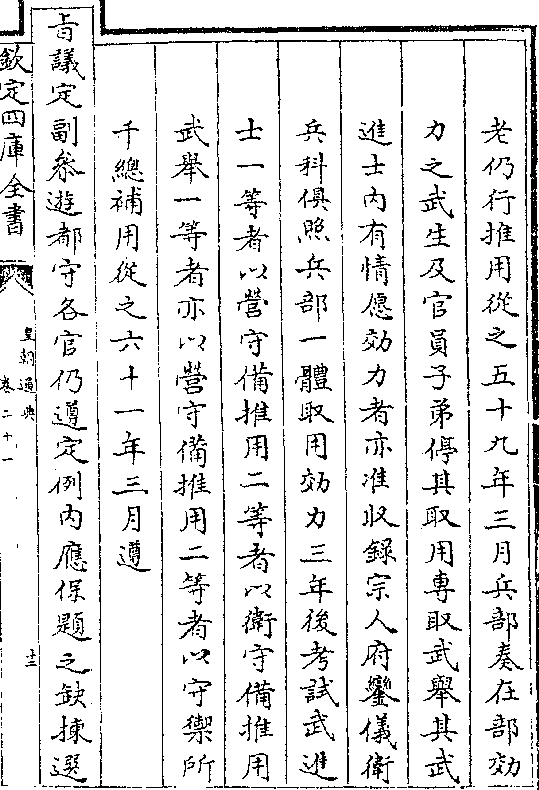 老仍行推用從之五十九年三月兵部奏在部効
力之武生及官員子弟停其取用專取武舉其武
進士内有情愿効力者亦准收録宗人府鑾儀衛
兵科俱照兵部一體取用効力三年後考試武進
士一等者以營守備推用二等者以衛守備推用
武舉一等者亦以營守備推用二等者以守禦所
千總補用從之六十一年三月遵
旨議定副叅遊都守各官仍遵定例内應保題之缺揀選
欽定四庫全書
皇朝通典
卷二十一
十三